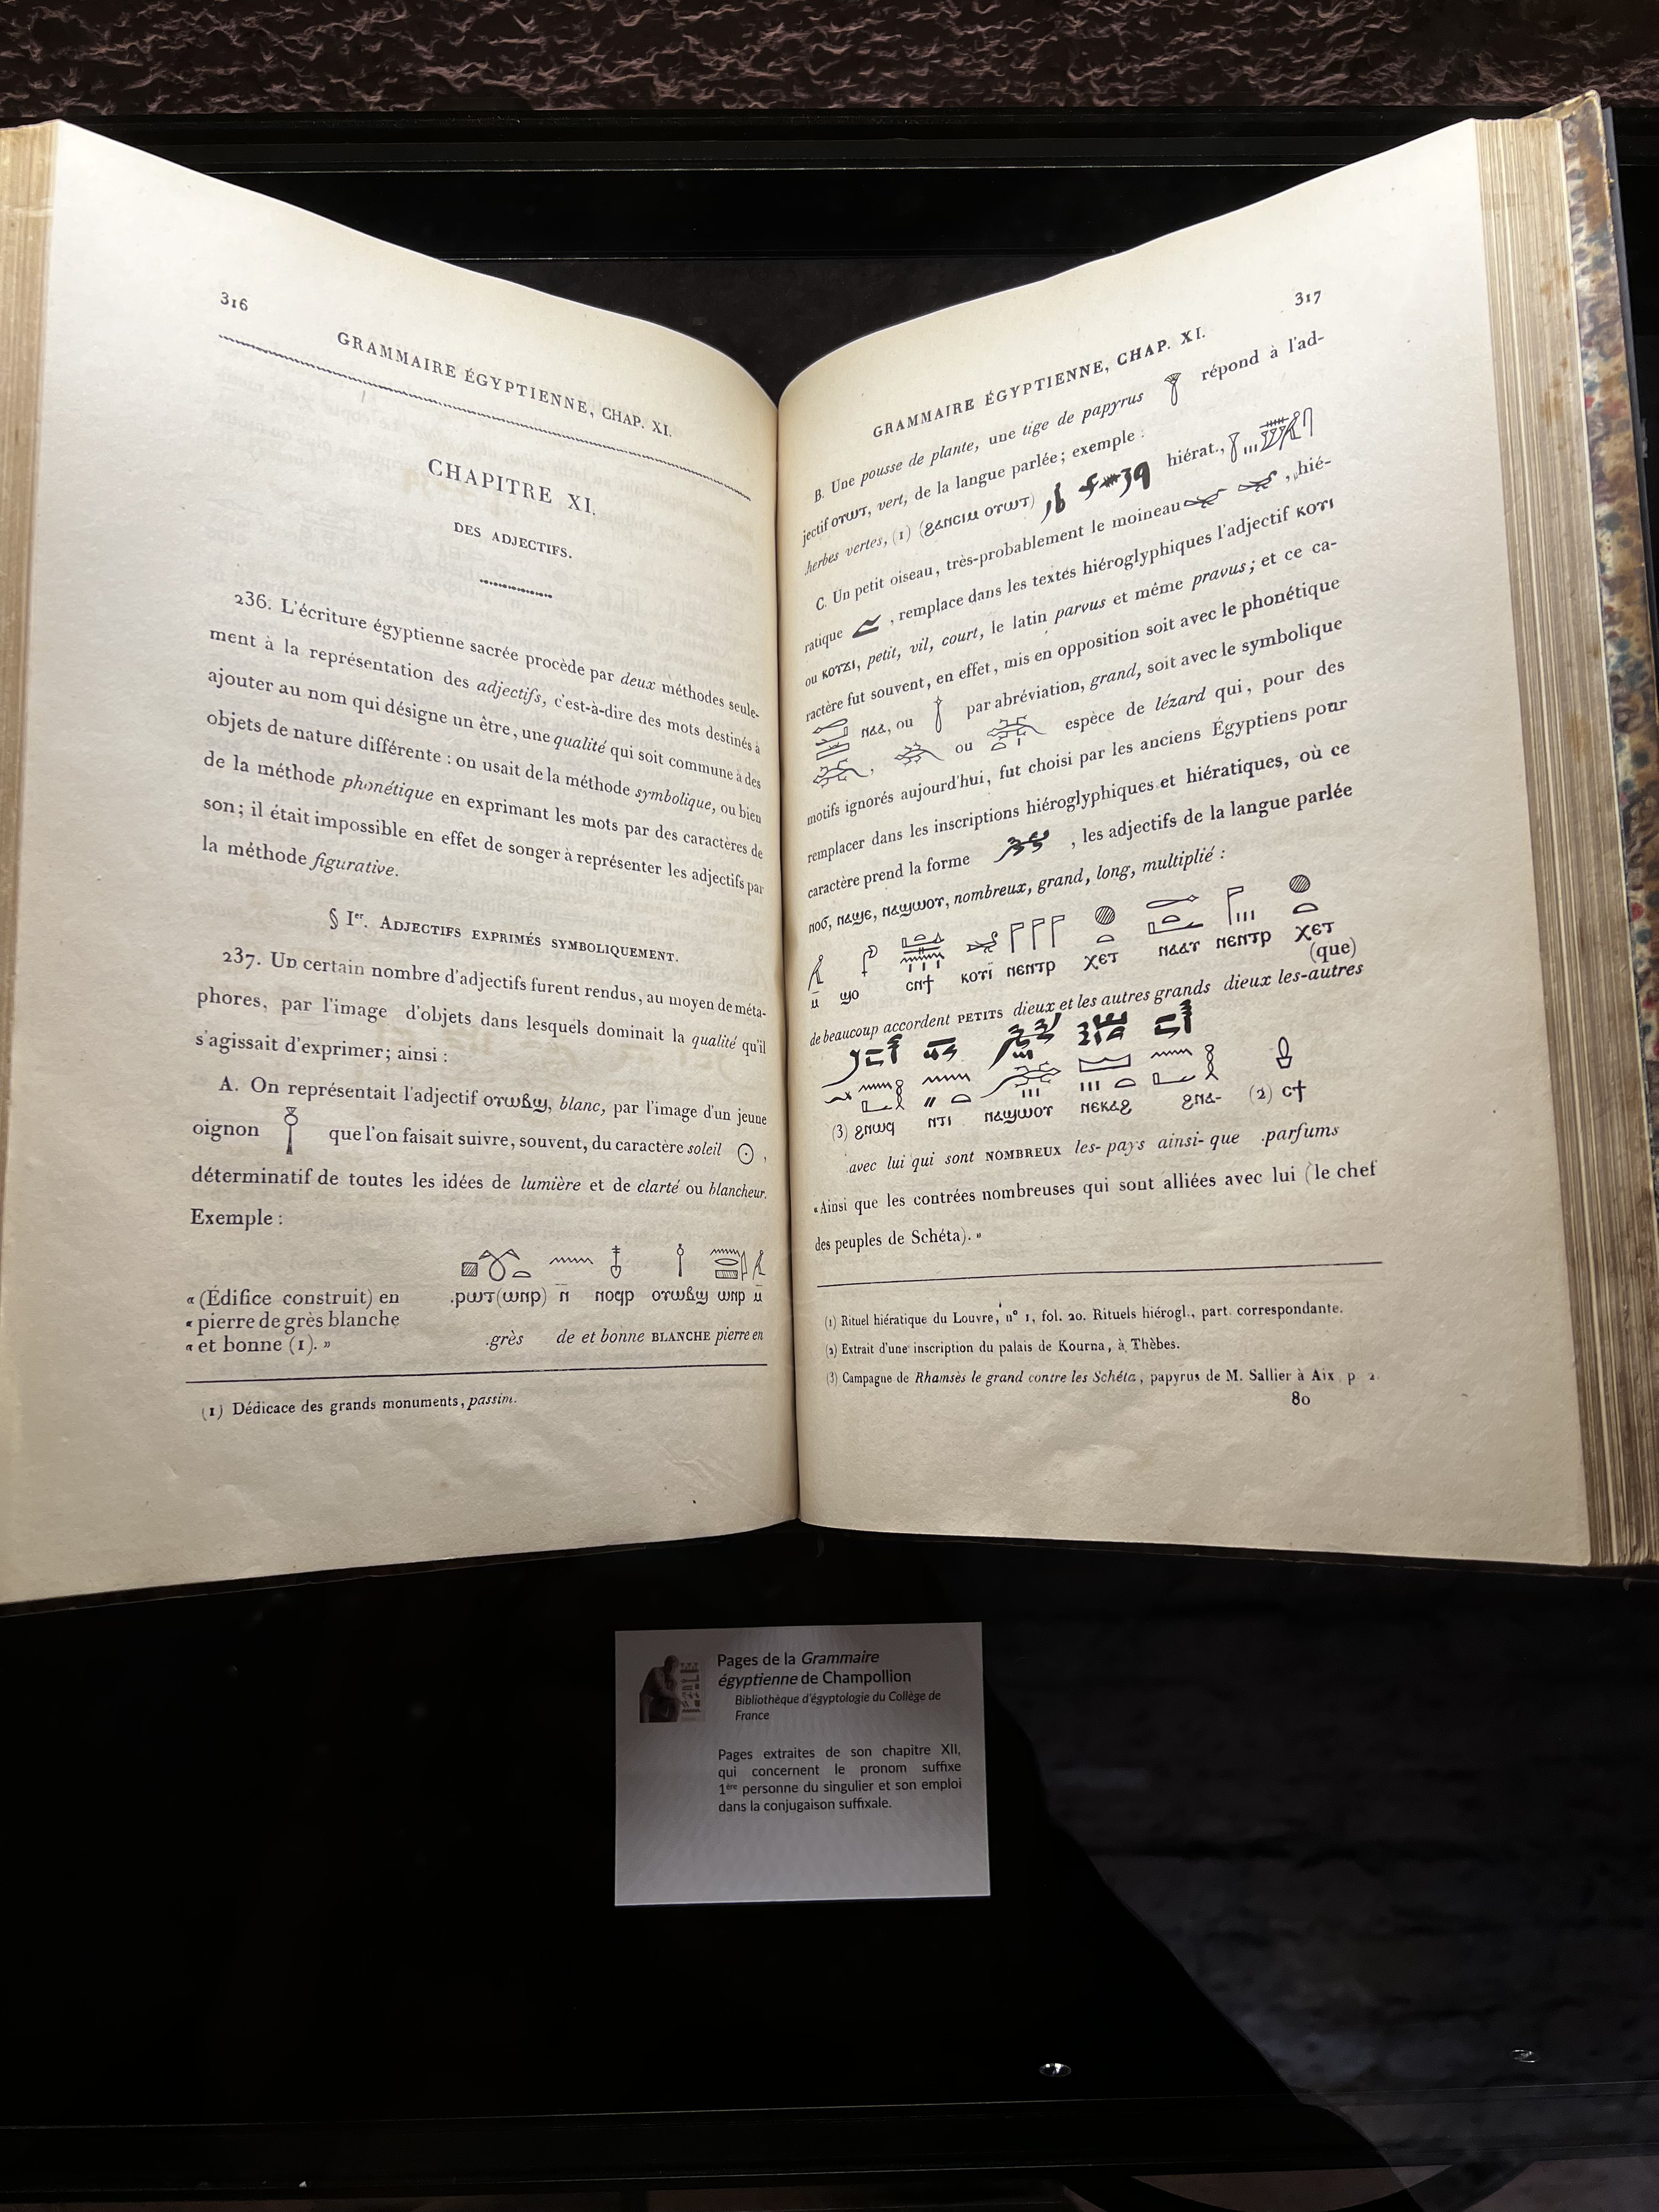 316
GRAMMAIRE ÉGYPTIENNE, CHAP. XI.
CHAPITRE XI.
DES ADJECTIFS.
236. L'écriture égyptienne sacrée procède par deux méthodes seule-
ment à la représentation des adjectifs, c'est-à-dire des mots destinés à
ajouter au nom qui désigne un être, une qualité qui soit commune à des
objets de nature différente : on usait de la méthode symbolique, ou bien
de la méthode phonétique en exprimant les mots par des caractères de
son; il était impossible en effet de songer à représenter les adjectifs par
la méthode figurative.
§ Ier. ADJECTIFS EXPRIMÉS SYMBOLIQUEMENT.
237. Un certain nombre d'adjectifs furent rendus, au moyen de méta-
phores, par l'image d'objets dans lesquels dominait la qualité qu'il
s'agissait d'exprimer; ainsi :
A. On représentait l'adjectif ⲟⲩⲱⲃϣ, blanc, par l'image d'un jeune
oignon que l'on faisait suivre, souvent, du caractère soleil ,
déterminatif de toutes les idées de lumière et de clarté ou blancheur.
Exemple :
« (Édifice construit) en
« pierre de grès blanche
« et bonne (1). »
.ⲣⲱⲧ(ⲱⲛⲣ) ⲛ̄ ⲛⲟϥⲣ ⲟⲩⲱⲃϣ ⲱⲛⲣ ⲙ̄
.grès de et bonne BLANCHE pierre en
(1) Dédicace des grands monuments, passim.
317
GRAMMAIRE ÉGYPTIENNE, CHAP. XI.
B. Une pousse de plante, une tige de papyrus répond à l'ad-
jectif ⲟⲩⲱⲧ, vert, de la langue parlée; exemple :
hiérat.,
herbes vertes, (1) (ϩⲁⲛⲥⲓⲙ ⲟⲩⲱⲧ)
C. Un petit oiseau, très-probablement le moineau , hié-
ratique , remplace dans les textes hiéroglyphiques l'adjectif ⲕⲟⲩⲓ
ou ⲕⲟⲩϫⲓ, petit, vil, court, le latin parvus et même pravus; et ce ca-
ractère fut souvent, en effet, mis en opposition soit avec le phonétique
ⲛⲁⲁ, ou par abréviation, grand, soit avec le symbolique
, ou espèce de lézard qui, pour des
motifs ignorés aujourd'hui, fut choisi par les anciens Égyptiens pour
remplacer dans les inscriptions hiéroglyphiques et hiératiques, où ce
caractère prend la forme , les adjectifs de la langue parlée
ⲛⲟϭ, ⲛⲁϣⲉ, ⲛⲁϣⲱⲟⲩ, nombreux, grand, long, multiplié :
ⲙ̄ ϣⲟ ⲥⲛϯ ⲕⲟⲩⲓ ⲛⲉⲛⲧⲣ ⲭⲉⲧ ⲛⲁⲁⲩ ⲛⲉⲛⲧⲣ ⲭⲉⲧ
(que)
de beaucoup accordent PETITS dieux et les autres grands dieux les-autres
(3) ϩⲛⲱϥ ⲛⲧⲓ ⲛⲁϣⲱⲟⲩ ⲛⲉⲕⲁϩ ϩⲛⲁ- (2) ⲥϯ
avec lui qui sont NOMBREUX les-pays ainsi-que .parfums
«Ainsi que les contrées nombreuses qui sont alliées avec lui (le chef
des peuples de Schéta). »
(1) Rituel hiératique du Louvre, n° 1, fol. 20. Rituels hiérogl., part. correspondante.
(2) Extrait d'une inscription du palais de Kourna, à Thèbes.
(3) Campagne de Rhamsès le grand contre les Schéta, papyrus de M. Sallier à Aix, p 2.
80
Pages de la Grammaire
égyptienne de Champollion
Bibliothèque d'égyptologie du Collège de
France
Pages extraites de son chapitre XII,
qui concernent le pronom suffixe
1ère personne du singulier et son emploi
dans la conjugaison suffixale.